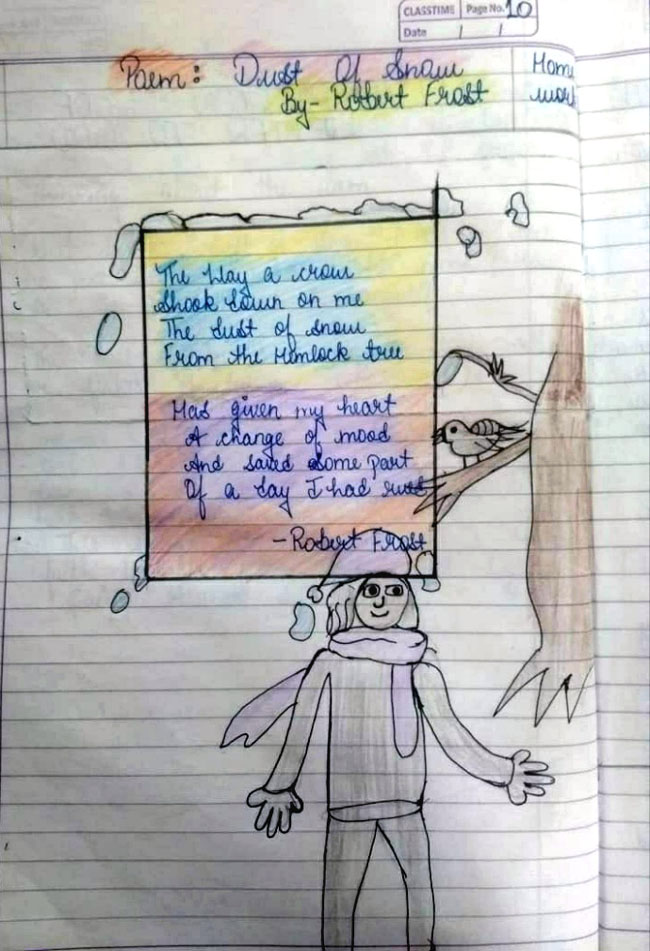 CLASSTIME Page No. 10
Date / /
Poem: Dust Of Snow
By- Robert Frost
Home
work
The Way a crow
Shook down on me
The dust of snow
From the Hemlock tree
Has given my heart
A change of mood
And saved some part
Of a day I had rued
- Robert Frost